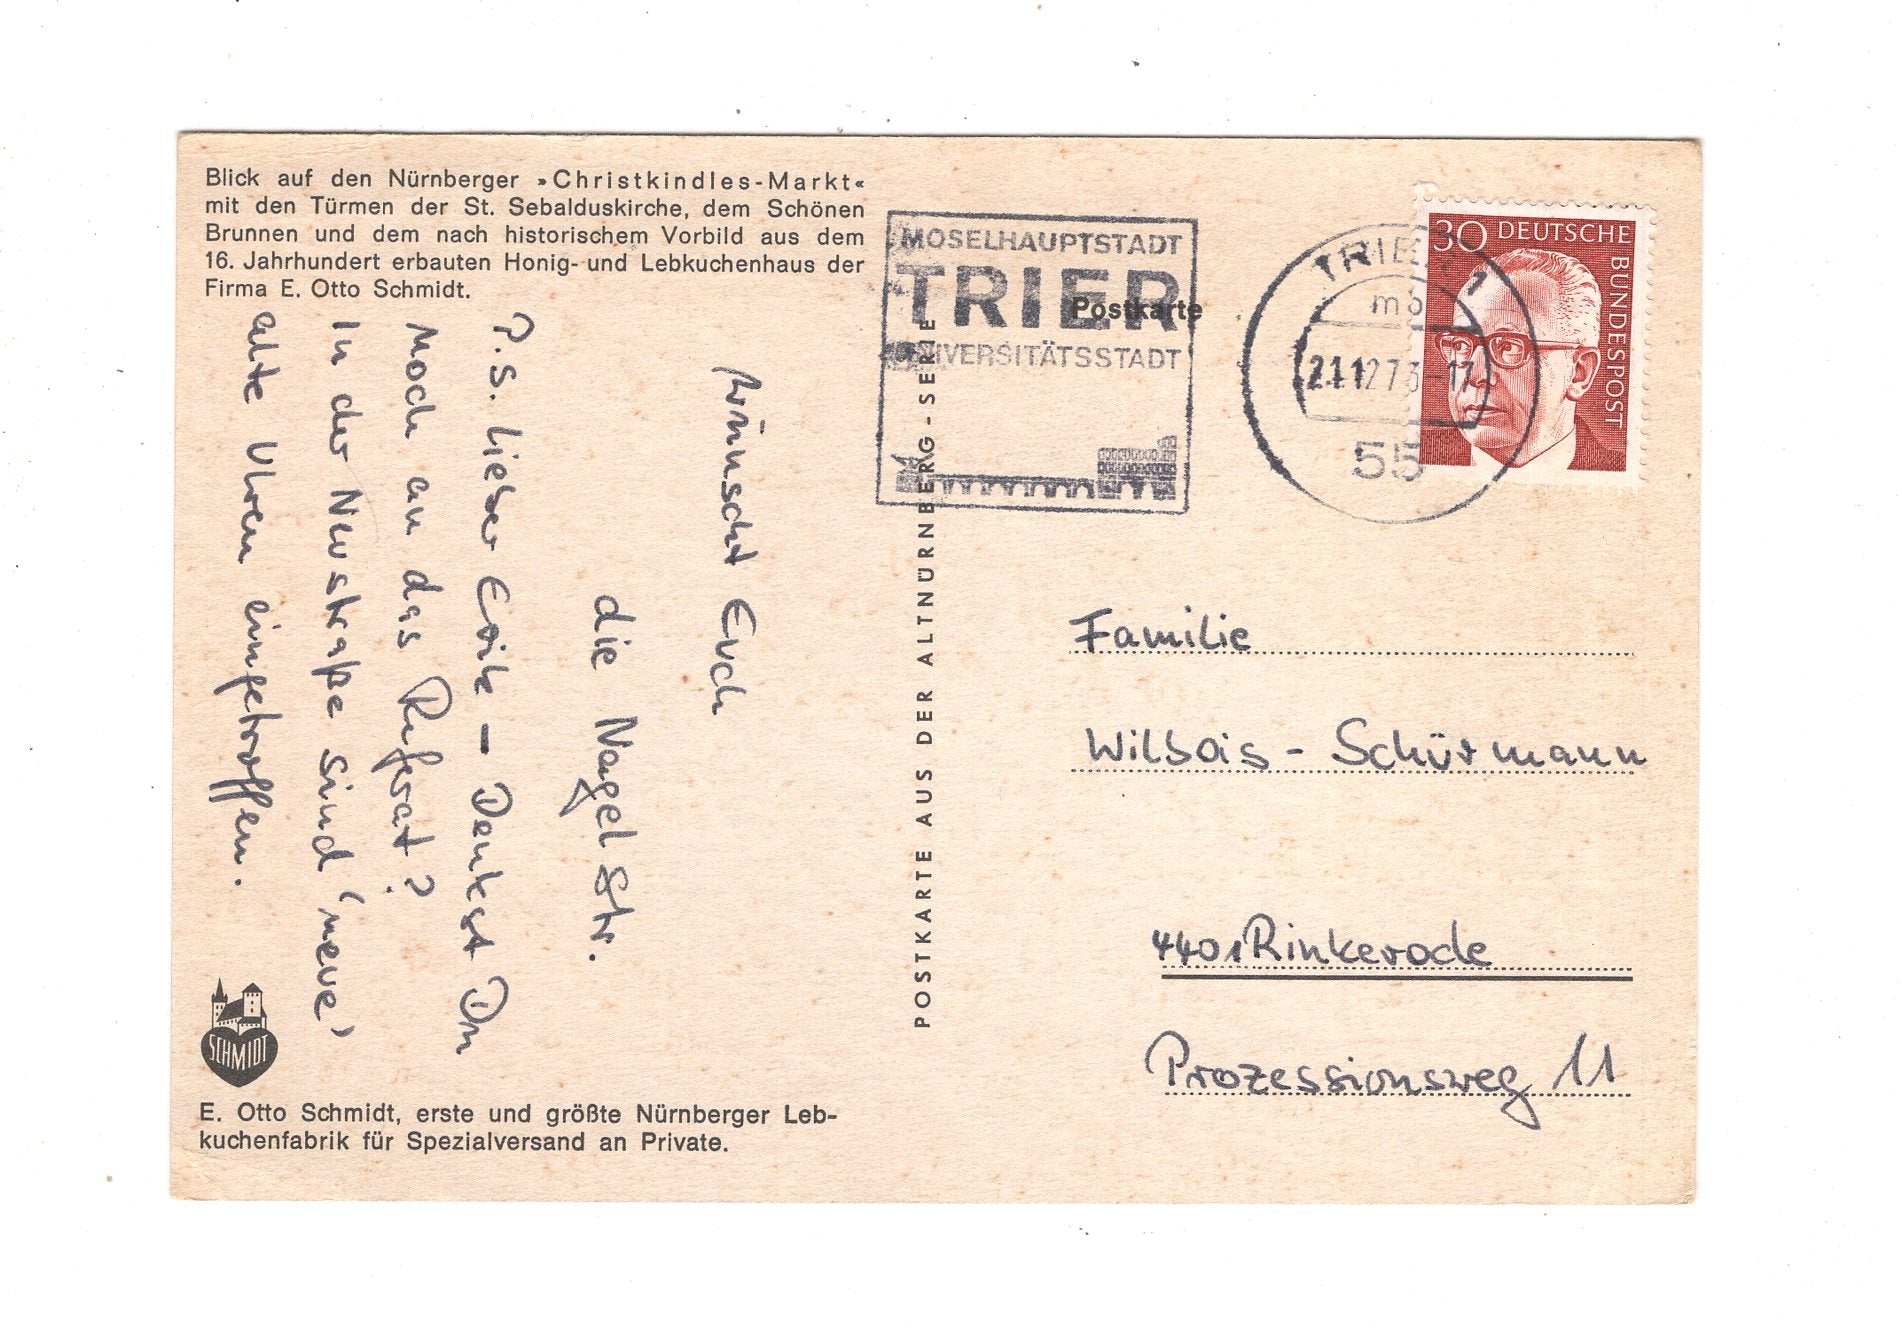 Blick auf den Nürnberger »Christkindles-Markt«
mit den Türmen der St. Sebalduskirche, dem Schönen
Brunnen und dem nach historischem Vorbild aus dem
16. Jahrhundert erbauten Honig- und Lebkuchenhaus der
Firma E. Otto Schmidt.
wünscht Euch
die Nagelstr.
P.S. Lieber Erik – Denkst Du
noch an das Referat?
In der Neustraße sind 'neue'
alte Uhren eingetroffen.
SCHMIDT
E. Otto Schmidt, erste und größte Nürnberger Leb-
kuchenfabrik für Spezialversand an Private.
POSTKARTE AUS DER ALTNÜRNBERG-SERIE
MOSELHAUPTSTADT
TRIER
UNIVERSITÄTSSTADT
Postkarte
TRIER 1
mb
21.12.73-17
55
30 DEUTSCHE
BUNDESPOST
Familie
Wilbois - Schürmann
4401 Rinkerode
Prozessionsweg 11